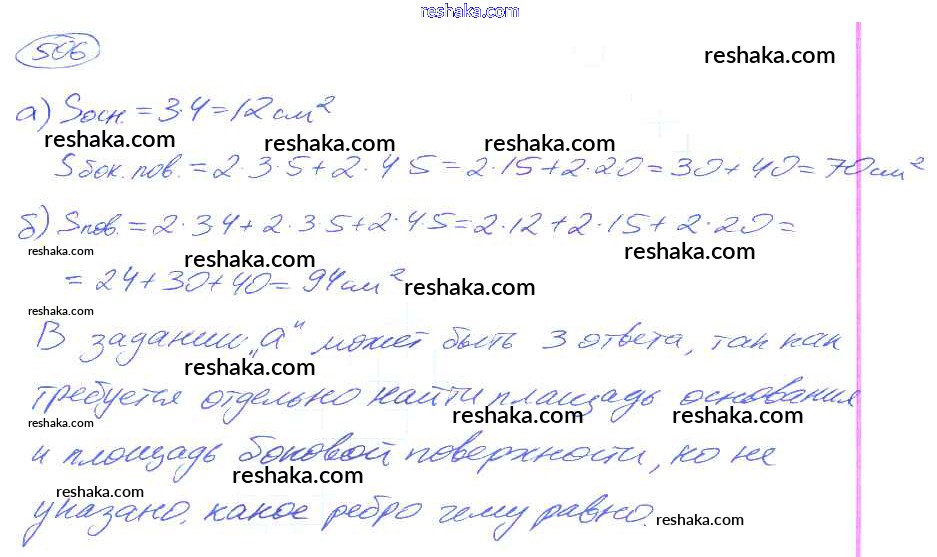 reshaka.com
506
reshaka.com
а) Sосн. = 3·4 = 12 см²
reshaka.com reshaka.com reshaka.com
Sбок. пов. = 2·3·5 + 2·4·5 = 2·15 + 2·20 = 30 + 40 = 70 см²
б) Sпов. = 2·3·4 + 2·3·5 + 2·4·5 = 2·12 + 2·15 + 2·20 =
reshaka.com reshaka.com reshaka.com
= 24 + 30 + 40 = 94 см²
reshaka.com
reshaka.com
В задании „а" может быть 3 ответа, так как
reshaka.com
требуется отдельно найти площадь основания
reshaka.com reshaka.com reshaka.com
и площадь боковой поверхности, но не
reshaka.com
reshaka.com
указано, какое ребро чему равно.
reshaka.com